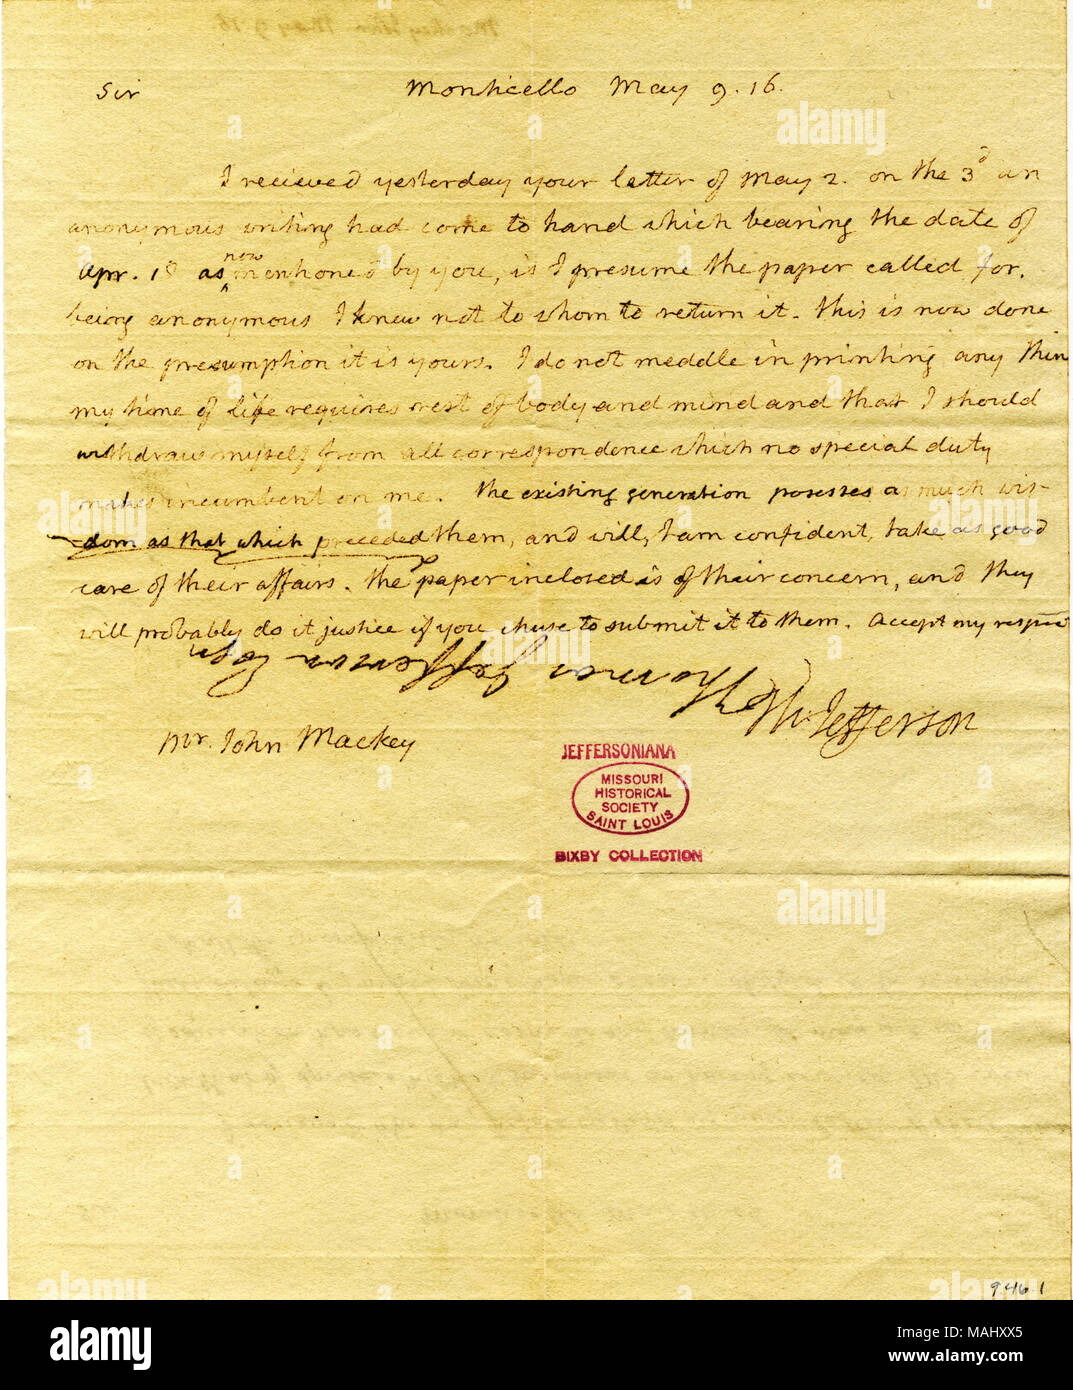 Sir Monticello May 9. 16.
I recieved yesterday your letter of May 2. on the 3d an
anonymous writing had come to hand which bearing the date of
Apr. 18 as now mentioned by you, is I presume the paper called for.
being anonymous I knew not to whom to return it. this is now done
on the presumption it is yours. I do not meddle in printing any thin
my time of life requires rest of body and mind and that I should
withdraw myself from all correspondence which no special duty
makes incumbent on me. the existing generation posesses as much wis-
dom as that which preceded them, and will, I am confident, take as good
care of their affairs. the paper inclosed is of their concern, and they
will probably do it justice if you chuse to submit it to them. Accept my respect
Thomas Jefferson Esqr.
Th: Jefferson
Mr. John Mackey
JEFFERSONIANA
MISSOURI
HISTORICAL
SOCIETY
SAINT LOUIS
BIXBY COLLECTION
946.1
alamy
Image ID: MAHXX5
www.alamy.com